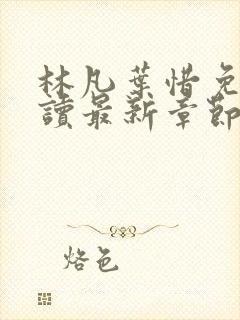 林凡葉惜免
讀最新章節
烙色